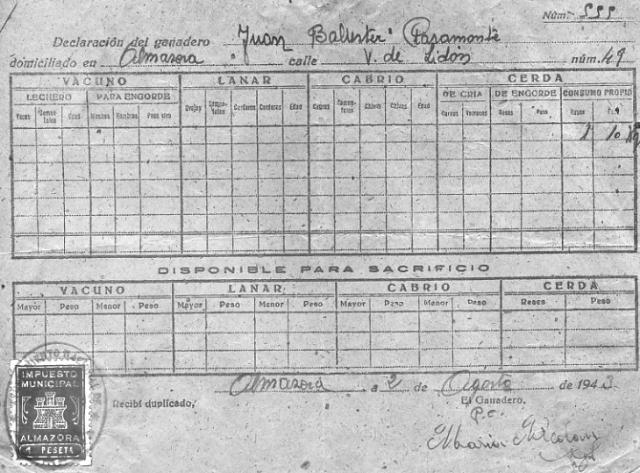 Núm. 555
Declaración del ganadero Juan Ballester Pasamonte
domiciliado en Almazora calle V. de Lidón núm. 49
VACUNO LANAR CABRIO CERDA
LECHERO PARA ENGORDE DE CRIA DE ENGORDE CONSUMO PROPIO
Vacas Edad Machos Hembras Peso vivo Ovejas Corderos Corderas Edad Cabras Edad Reses Peso Reses Peso
1 10 Kg
DISPONIBLE PARA SACRIFICIO
VACUNO LANAR CABRIO CERDA
Mayor Peso Menor Peso Mayor Peso Menor Peso Mayor Peso Menor Peso Reses Peso
Almazora a 2 de Agosto de 1943
Recibí duplicado, El Ganadero,
P.O.
Maria
IMPUESTO
MUNICIPAL
ALMAZORA
1 PESETA